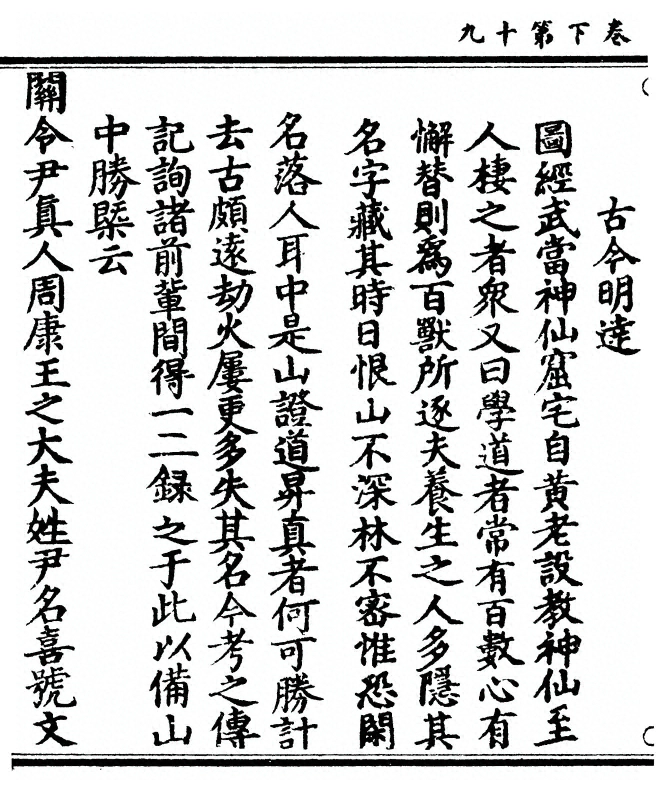 卷下第十九
古今明達
圖經武當神仙窟宅自黃老設教神仙至
人棲之者衆又曰學道者常有百數心有
懈替則爲百獸所逐夫養生之人多隱其
名字藏其時日恨山不深林不密惟恐閑
名落人耳中是山證道昇真者何可勝計
去古頗遠劫火屢更多失其名今考之傳
記詢諸前輩間得一二録之于此以備山
中勝槩云
關令尹真人周康王之大夫姓尹名喜號文